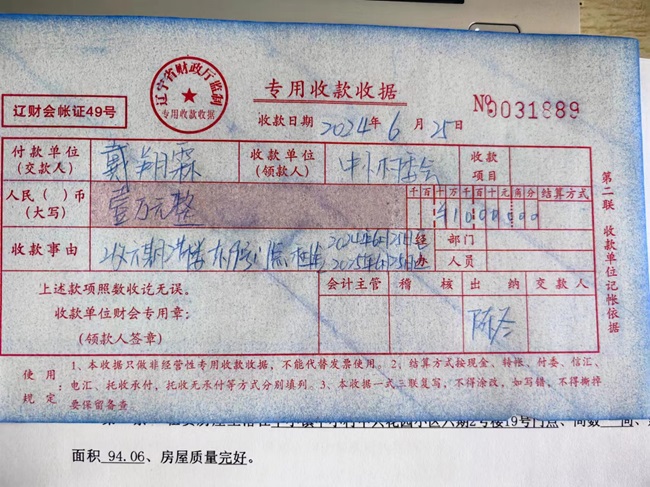 专用收款收据
辽宁省财政厅监制
专用收款收据
辽财会帐证49号
收款日期 2024年6月25日
№0031889
付款单位(交款人) 戴翔霖 收款单位(领款人) 收款项目
人民( )币(大写) 壹万元整 千百十万千百十元角分 ¥1000000 结算方式
收款事由 2024年6月25日 2025年6月25日 经办 部门 人员
上述款项照数收讫无误。 会计主管 稽核 出纳 交款人
收款单位财会专用章:
(领款人签章)
第二联 收款单位记帐依据
使用规定 1、本收据只做非经营性专用收款收据,不能代替发票使用。2、结算方式按现金、转帐、付委、信汇、
电汇、托收承付,托收无承付等方式分别填列。3、本收据一式三联复写,不得涂改,如写错,不得撕掉
要保留备查
小区六期2号楼19号门点、间数 间、
面积 94.06、房屋质量完好。